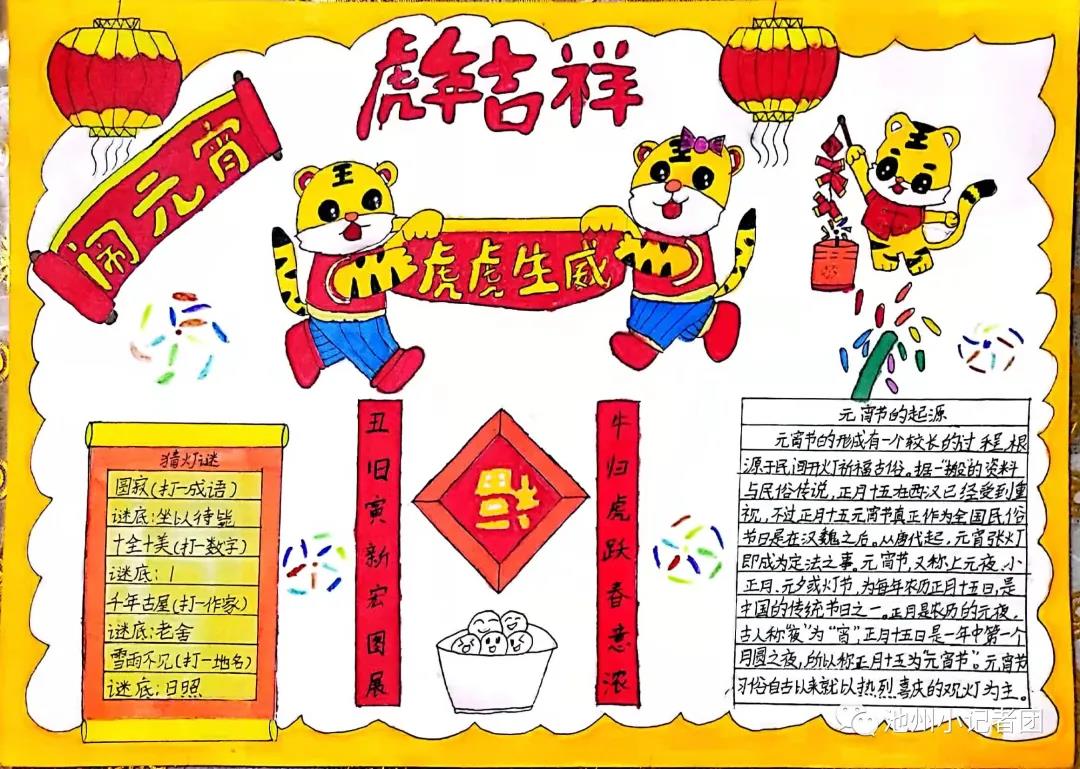 虎年吉祥
闹元宵
虎虎生威
猜灯谜
圆寂(打一成语)
谜底:坐以待毙
十全十美(打一数字)
谜底:1
千年古屋(打一作家)
谜底:老舍
雪雨不见(打一地名)
谜底:日照
丑旧寅新宏图展
福
牛归虎跃春意浓
元宵节的起源
元宵节的形成有一个较长的过程,根
源于民间开灯祈福古俗。据一般的资料
与民俗传说,正月十五在西汉已经受到重
视,不过正月十五元宵节真正作为全国民俗
节日是在汉魏之后。从唐代起,元宵张灯
即成为定法之事。元宵节,又称上元夜、小
正月、元夕或灯节,为每年农历正月十五日,是
中国的传统节日之一。正月是农历的元夜,
古人称"夜"为"宵",正月十五日是一年中第一个
月圆之夜,所以称正月十五为"元宵节"。元宵节
习俗自古以来就以热烈喜庆的观灯为主。
王
王
王
池州小记者团